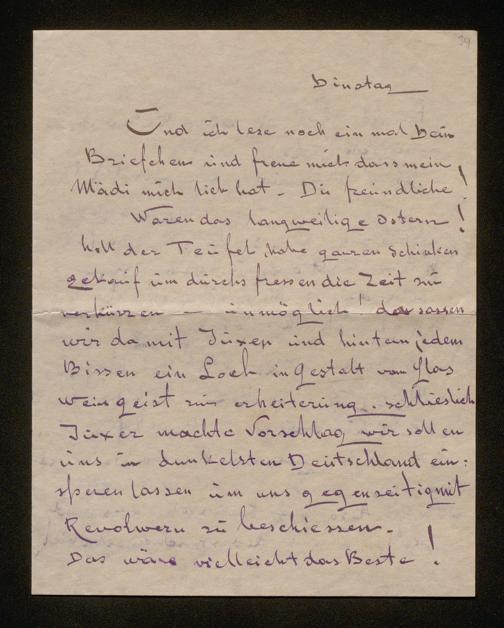 34
Dinstag
Und ich lese noch ein mal Dein
Briefchen und freue mich dass mein
Mädi mich lieb hat - Du freundliche!
Waren das langweilige Ostern!
holl der Teufel, habe ganzen Schinken
gekauf um durchs fressen die Zeit zu
verkürzen - unmöglich! da sassen
wir da mit Juxer und hintern jedem
Bissen ein Loch in Gestalt vom Glas
weingeist zur erheiterung. schlieslich
Juxer machte Vorschlag wir sollen
uns in dunkelsten Deutschland ein:
sperren lassen um uns gegenseitig mit
Revolwern zu beschiessen -
Das wäre vielleicht das Beste!